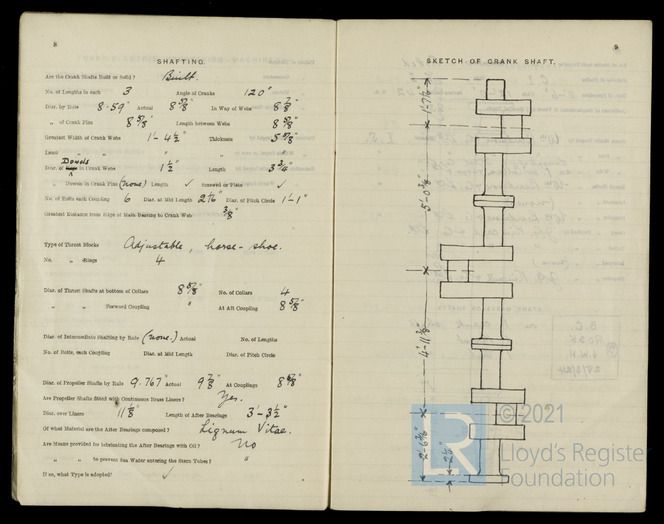 8
SHAFTING.
Are the Crank Shafts Built or Solid? Built.
No. of Lengths in each 3 Angle of Cranks 120°
Diar. by Rule 8.59" Actual 8 5/8" In Way of Webs 8 7/8"
" of Crank Pins 8 5/8" Length between Webs
Greatest Width of Crank Webs 1'- 4½" Thickness
Least " " "
Diar. of Dowels in Crank Webs 1½" Length 3¾"
" Dowels in Crank Pins (none) Length ✓ Screwed or Plain ✓
No. of Bolts each Coupling 6 Diar. at Mid Length Diar. of Pitch Circle 1'-1"
Greatest Distance from Edge of Main Bearing to Crank Web 3/8"
Type of Thrust Blocks Adjustable, horse-shoe.
No. " Rings 4
Diar. of Thrust Shafts at bottom of Collars 8 5/8" No. of Collars 4
" " Forward Coupling " At Aft Coupling 8 5/8"
Diar. of Intermediate Shafting by Rule (none.) Actual No. of Lengths
No. of Bolts, each Coupling Diar. at Mid Length Diar. of Pitch Circle
Diar. of Propeller Shafts by Rule 9.767" Actual 9 7/8" At Couplings
Are Propeller Shafts fitted with Continuous Brass Liners? Yes.
Diar. over Liners 11 1/8" Length of After Bearings 3'-3½"
Of what Material are the After Bearings composed? Lignum Vitae.
Are Means provided for lubricating the After Bearings with Oil? No
" " to prevent Sea Water entering the Stern Tubes? "
If so, what Type is adopted? ✓
9
SKETCH OF CRANK SHAFT.
© 2021
LR
Lloyd's Register
Foundation